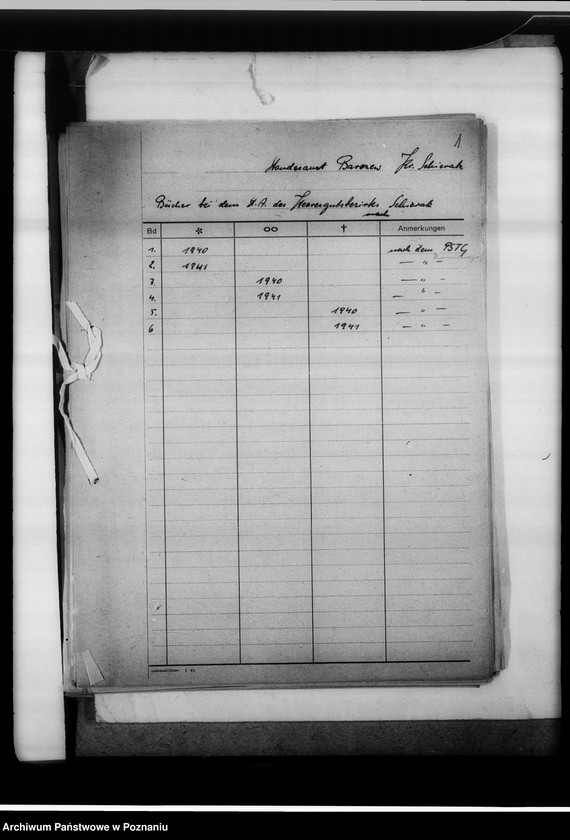 1
Standesamt Barozew Kr. Schieratz
Bücher bei dem St.A. des Heeresgutsbezirks Schieratz
nach
Bd * ∞ † Anmerkungen
1. 1940 nach dem PSTG
2. 1941 — " —
3. 1940 — " —
4. 1941 — " —
5. 1940 — " —
6 1941 — " —
Archiwum Państwowe w Poznaniu